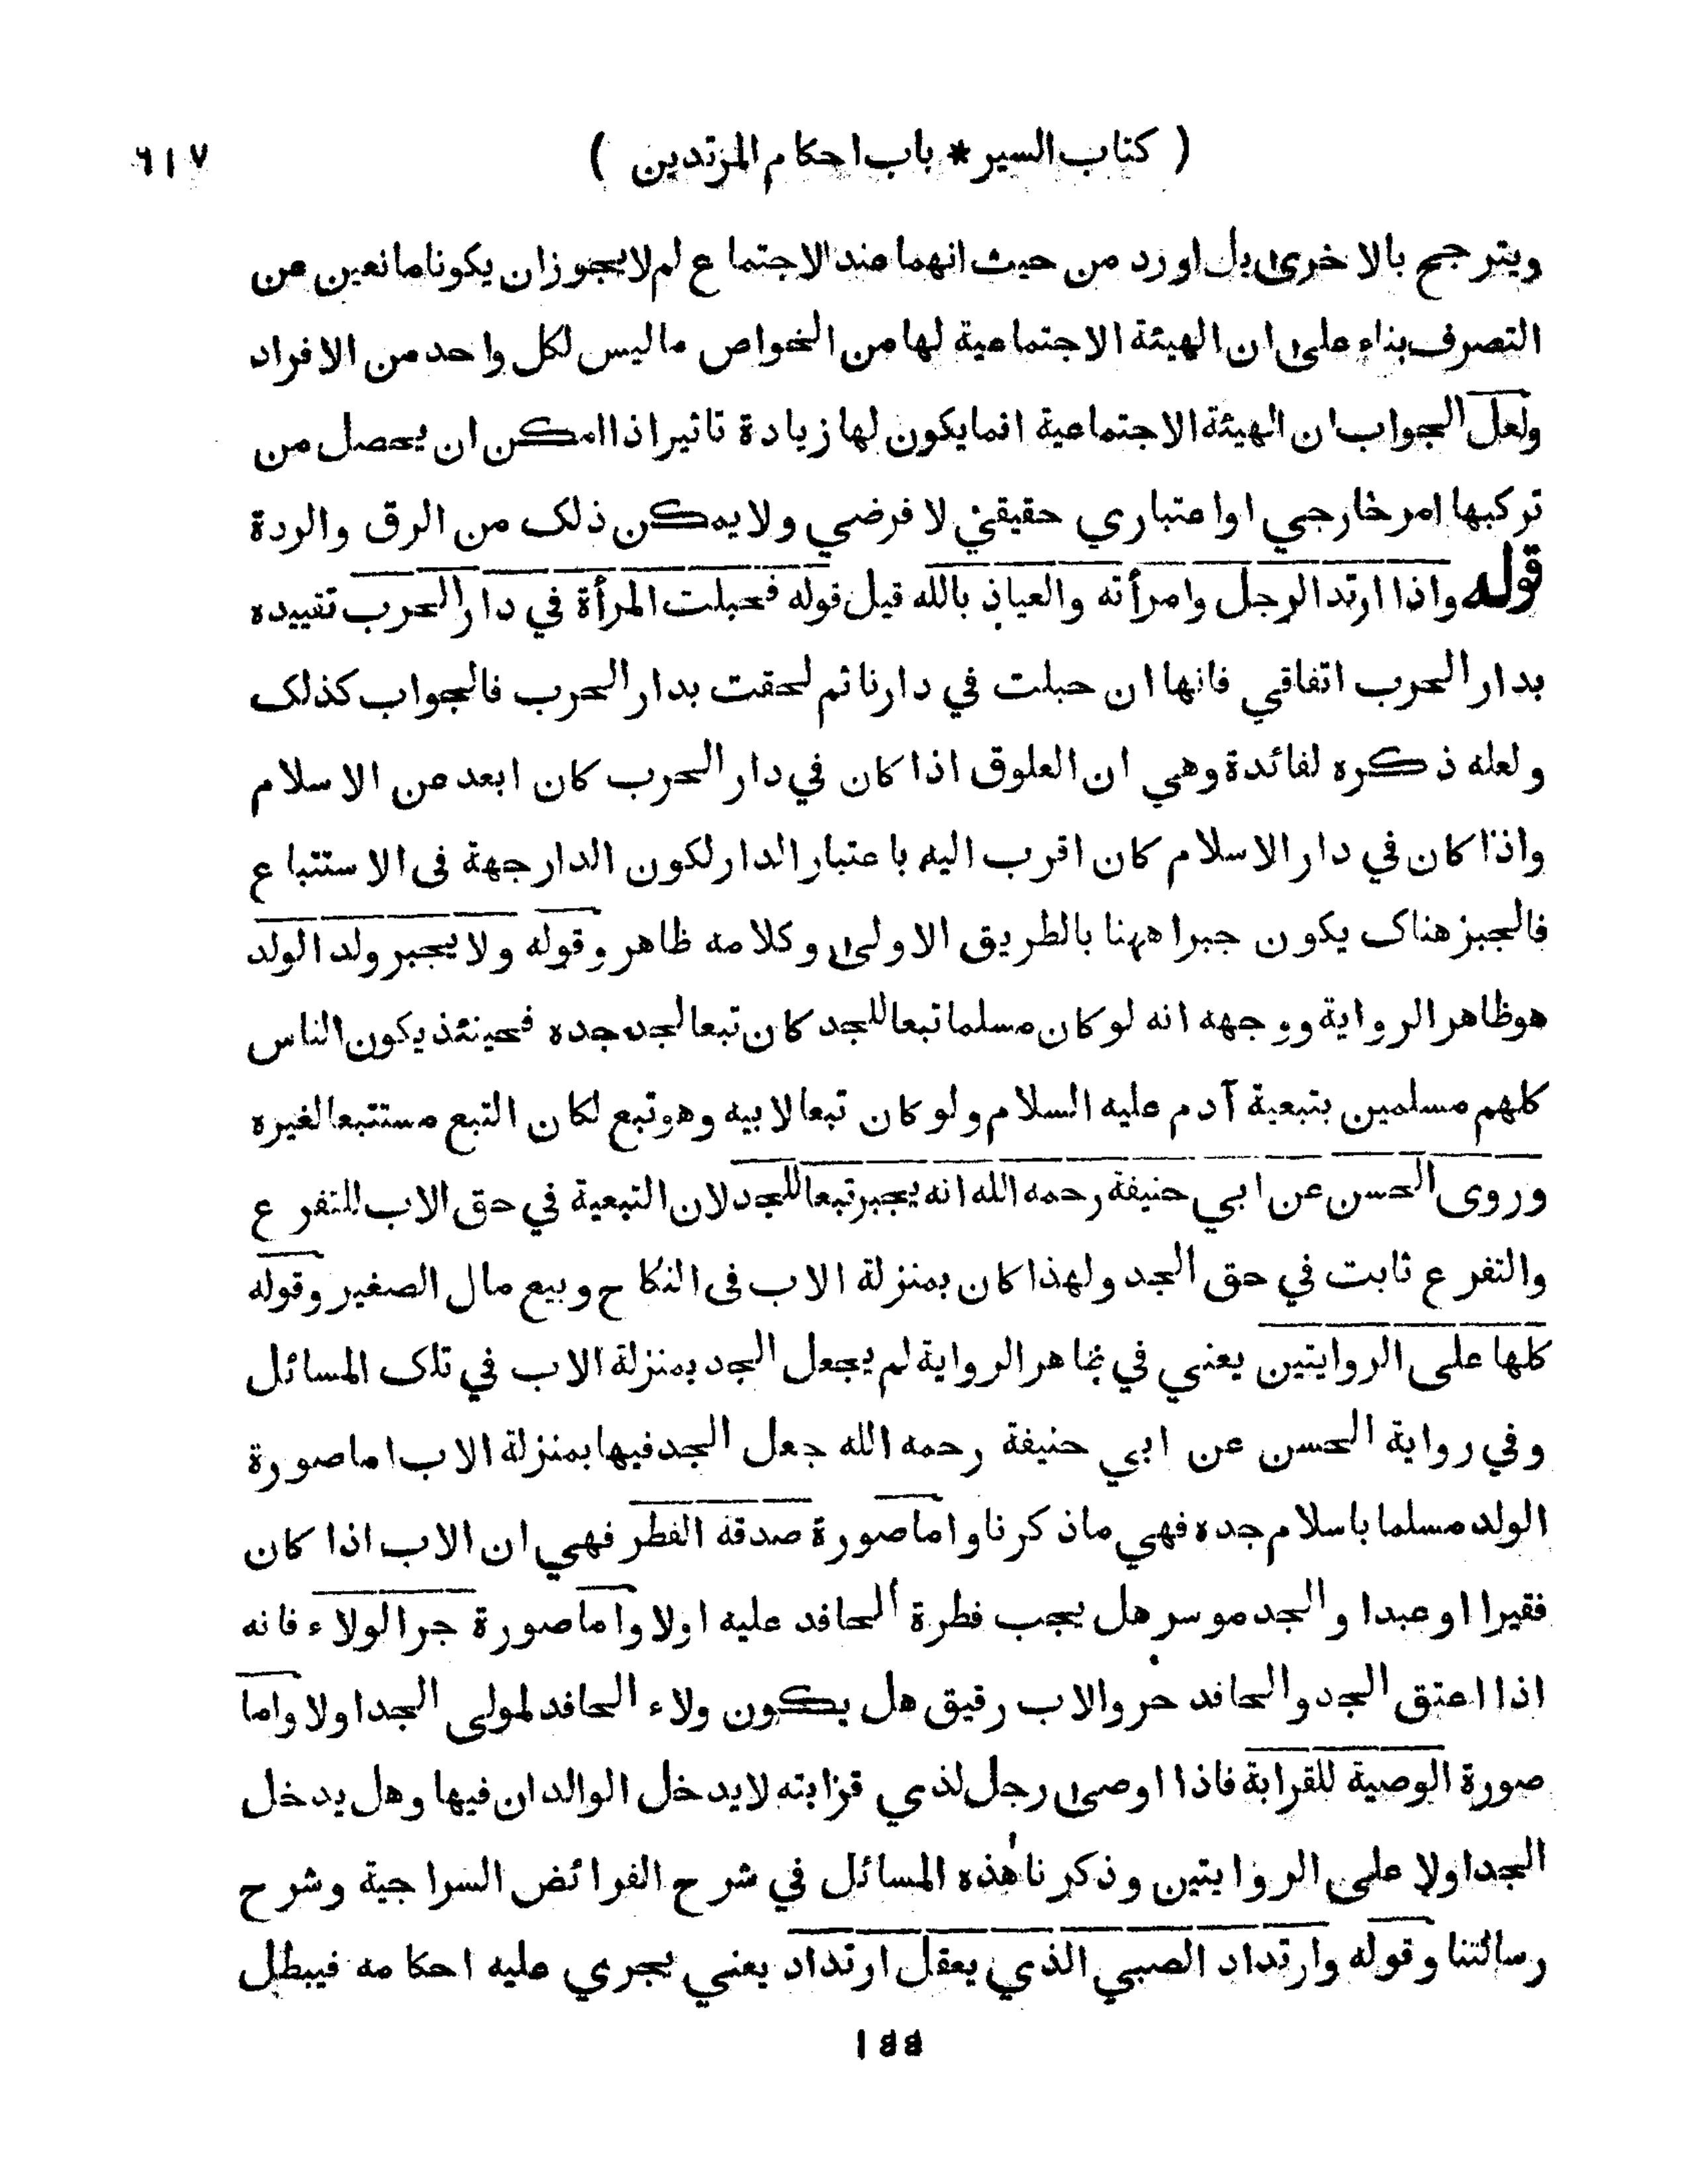 ( كتاب السير * باب احكام المرتدين )
٦١٧
ويترجح بالاخرى بل اورد من حيث انهما عند الاجتماع لم لا يجوز ان يكونا مانعين عن
التصرف بناء على ان الهيئة الاجتماعية لها من الخواص ما ليس لكل واحد من الافراد
ولعل الجواب ان الهيئة الاجتماعية انما يكون لها زيادة تاثير اذا امكن ان يحصل من
تركبها امر خارجي او اعتباري حقيقي لا فرضي ولا يمكن ذلك من الرق والردة
قوله واذا ارتد الرجل وامرأته والعياذ بالله قيل قوله فحبلت المرأة في دار الحرب تقييده
بدار الحرب اتفاقي فانها ان حبلت في دارنا ثم لحقت بدار الحرب فالجواب كذلك
ولعله ذكره لفائدة وهي ان العلوق اذا كان في دار الحرب كان ابعد عن الاسلام
واذا كان في دار الاسلام كان اقرب اليه باعتبار الدار لكون الدار جهة فى الاستتباع
فالجبر هناك يكون جبرا ههنا بالطريق الاولى وكلامه ظاهر وقوله ولا يجبر ولد الولد
هو ظاهر الرواية ووجهه انه لو كان مسلما تبعا للجد كان تبعا لجد جده فحينئذ يكون الناس
كلهم مسلمين بتبعية آدم عليه السلام ولو كان تبعا لابيه وهو تبع لكان التبع مستتبعا لغيره
وروى الحسن عن ابي حنيفة رحمه الله انه يجبر تبعا للجد لان التبعية في حق الاب للتفرع
والتفرع ثابت في حق الجد ولهذا كان بمنزلة الاب فى النكاح وبيع مال الصغير وقوله
كلها على الروايتين يعني في ظاهر الرواية لم يجعل الجد بمنزلة الاب في تلك المسائل
وفي رواية الحسن عن ابي حنيفة رحمه الله جعل الجد فيها بمنزلة الاب اما صورة
الولد مسلما باسلام جده فهي ما ذكرنا واما صورة صدقة الفطر فهي ان الاب اذا كان
فقيرا او عبدا والجد موسر هل يجب فطرة الحافد عليه اولا واما صورة جر الولاء فانه
اذا اعتق الجد والحافد حر والاب رقيق هل يكون ولاء الحافد لمولى الجد اولا واما
صورة الوصية للقرابة فاذا اوصى رجل لذي قرابته لا يدخل الوالدان فيها وهل يدخل
الجد اولا على الروايتين وذكرنا هذه المسائل في شرح الفرائض السراجية وشرح
رسالتنا وقوله وارتداد الصبي الذي يعقل ارتداد يعني يجري عليه احكامه فيبطل